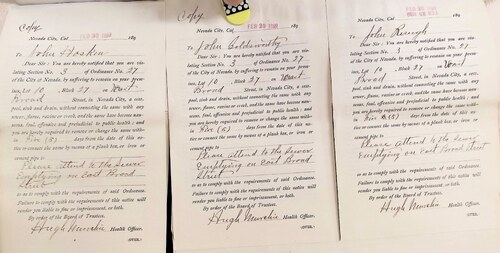 Copy
Nevada City, Cal., FEB 23 1898 189
To John Hosken
Dear Sir: You are hereby notified that you are vio-
lating Section No. 3 of Ordinance No. 27
of the City of Nevada, by suffering to remain on your prem-
ises, Lot 10, Block 27 on West
Broad Street, in Nevada City, a cess-
pool, sink and drain, without connecting the same with any
sewer, flume, ravine or canal, and the same have become nox-
ious, foul, offensive and prejudicial to public health; and
you are hereby required to remove or change the same with-
in Five (5) days from the date of this no-
tice or connect the same by means of a plank box, or iron or
cement pipe to
Please attend to the Sewer
Emptying on East Broad
Street
so as to comply with the requirements of said Ordinance.
Failure to comply with the requirements of this notice will
render you liable to fine or imprisonment, or both.
By order of the Board of Trustees.
Hugh Murchie Health Officer.
(OVER.)
Copy
Nevada City, Cal., FEB 23 1898 189
To John Goldsworthy
Dear Sir: You are hereby notified that you are vio-
lating Section No. 3 of Ordinance No. 27
of the City of Nevada, by suffering to remain on your prem-
ises, Lot 10, Block 27 on West
Broad Street, in Nevada City, a cess-
pool, sink and drain, without connecting the same with any
sewer, flume, ravine or canal, and the same have become nox-
ious, foul, offensive and prejudicial to public health; and
you are hereby required to remove or change the same with-
in Five (5) days from the date of this no-
tice or connect the same by means of a plank box, or iron or
cement pipe to
Please attend to the Sewer
Emptying on East Broad
Street
so as to comply with the requirements of said Ordinance.
Failure to comply with the requirements of this notice will
render you liable to fine or imprisonment, or both.
By order of the Board of Trustees.
Hugh Murchie Health Officer.
(OVER.)
Nevada City, Cal., FEB 23 1898 189
To John
Dear Sir: You are hereby notified that you are vio-
lating Section No. 3 of Ordinance No. 27
of the City of Nevada, by suffering to remain on your prem-
ises, Lot 10, Block 27 on West
Broad Street, in Nevada City, a cess-
pool, sink and drain, without connecting the same with any
sewer, flume, ravine or canal, and the same have become nox-
ious, foul, offensive and prejudicial to public health; and
you are hereby required to remove or change the same with-
in Five (5) days from the date of this no-
tice or connect the same by means of a plank box, or iron or
cement pipe to
Please attend to the Sewer
Emptying on East Broad Street
so as to comply with the requirements of said Ordinance.
Failure to comply with the requirements of this notice will
render you liable to fine or imprisonment, or both.
By order of the Board of Trustees.
Hugh Murchie Health Officer.
(OVER.)